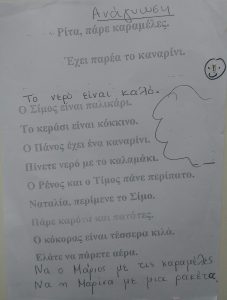 Ανάγνωση
Ρίτα, πάρε καραμέλες.
Έχει παρέα το καναρίνι.
Το νερό είναι καλό.
Ο Σίμος είναι παλικάρι.
Το κεράσι είναι κόκκινο.
Ο Πάνος έχει ένα καναρίνι.
Πίνετε νερό με το καλαμάκι.
Ο Ρένος και ο Τίμος πάνε περίπατο.
Ναταλία, περίμενε το Σίμο.
Πάρε καρότα και πατάτες.
Ο κόκορας είναι τέσσερα κιλά.
Ελάτε να πάρετε αέρα.
Να ο Μάριος με τις καραμέλες
Να η Μαρίνα με μια ρακέτα.